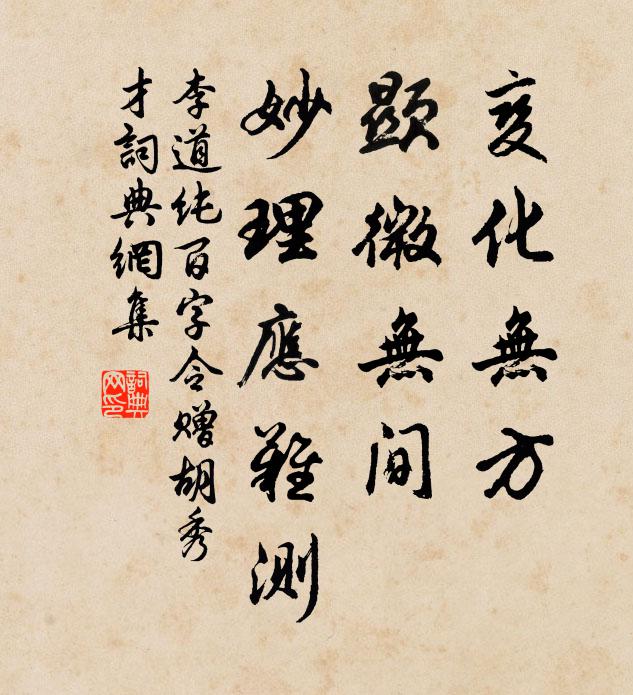 變化無方
顯微無間
妙理應難測
李道纯百字令赠胡秀
才詞典網集
詞典
网印